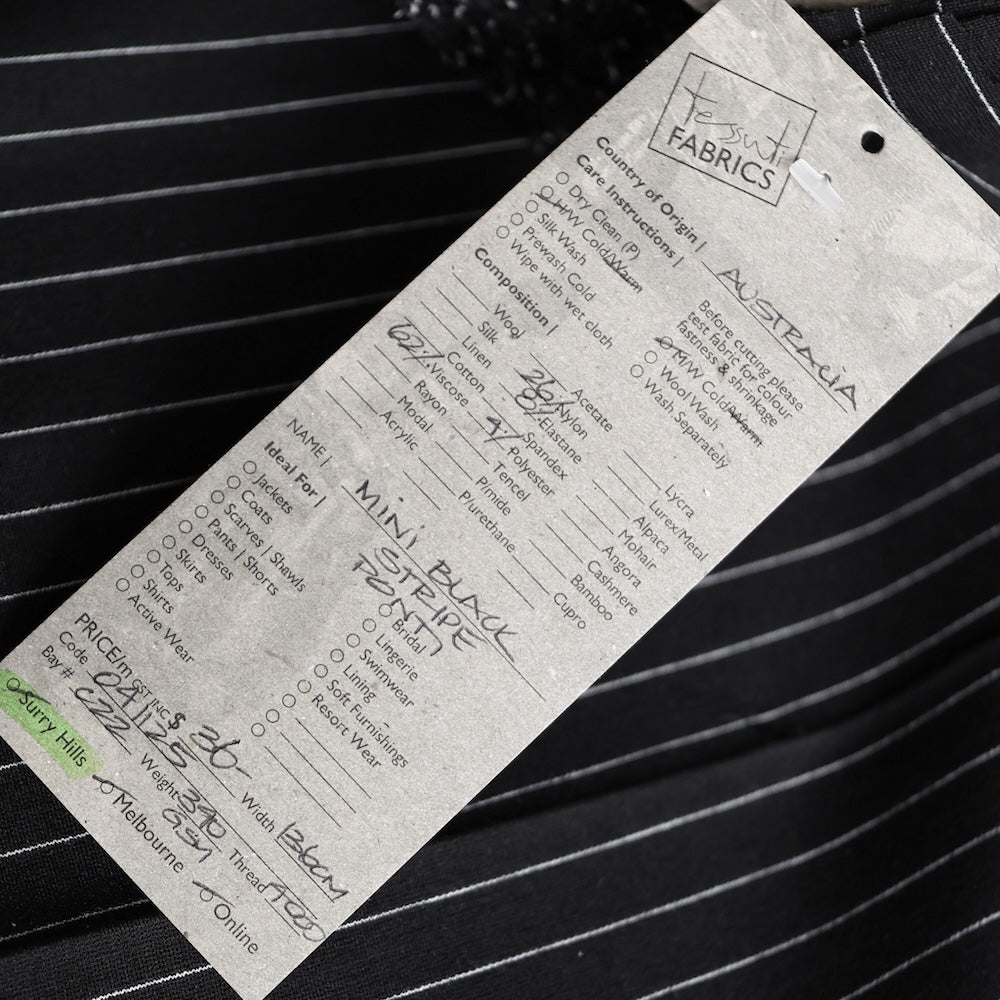 Tessuti
FABRICS
Country of Origin | AUSTRALIA
Care Instructions |
Dry Clean (P)
H/W Cold/Warm
Silk Wash
Prewash Cold
Wipe with wet cloth
Before cutting please
test fabric for colour
fastness & shrinkage
M/W Cold/Warm
Wool Wash
Wash Separately
Composition |
Wool
Silk
Linen
Cotton
62% Viscose
Rayon
Modal
Acrylic
Acetate
26% Nylon
8% Elastane
Spandex
4% Polyester
Tencel
P/mide
P/urethane
Lycra
Lurex/Metal
Alpaca
Mohair
Angora
Cashmere
Bamboo
Cupro
NAME | MINI BLACK
STRIPE
PONTI
Ideal For |
Jackets
Coats
Scarves | Shawls
Pants | Shorts
Dresses
Skirts
Tops
Shirts
Active Wear
Bridal
Lingerie
Swimwear
Lining
Soft Furnishings
Resort Wear
PRICE/m GST INC $ 36-
Code 041125 Width 136CM
Bay # C222 Weight 340 GSM Thread
Surry Hills
Melbourne
Online